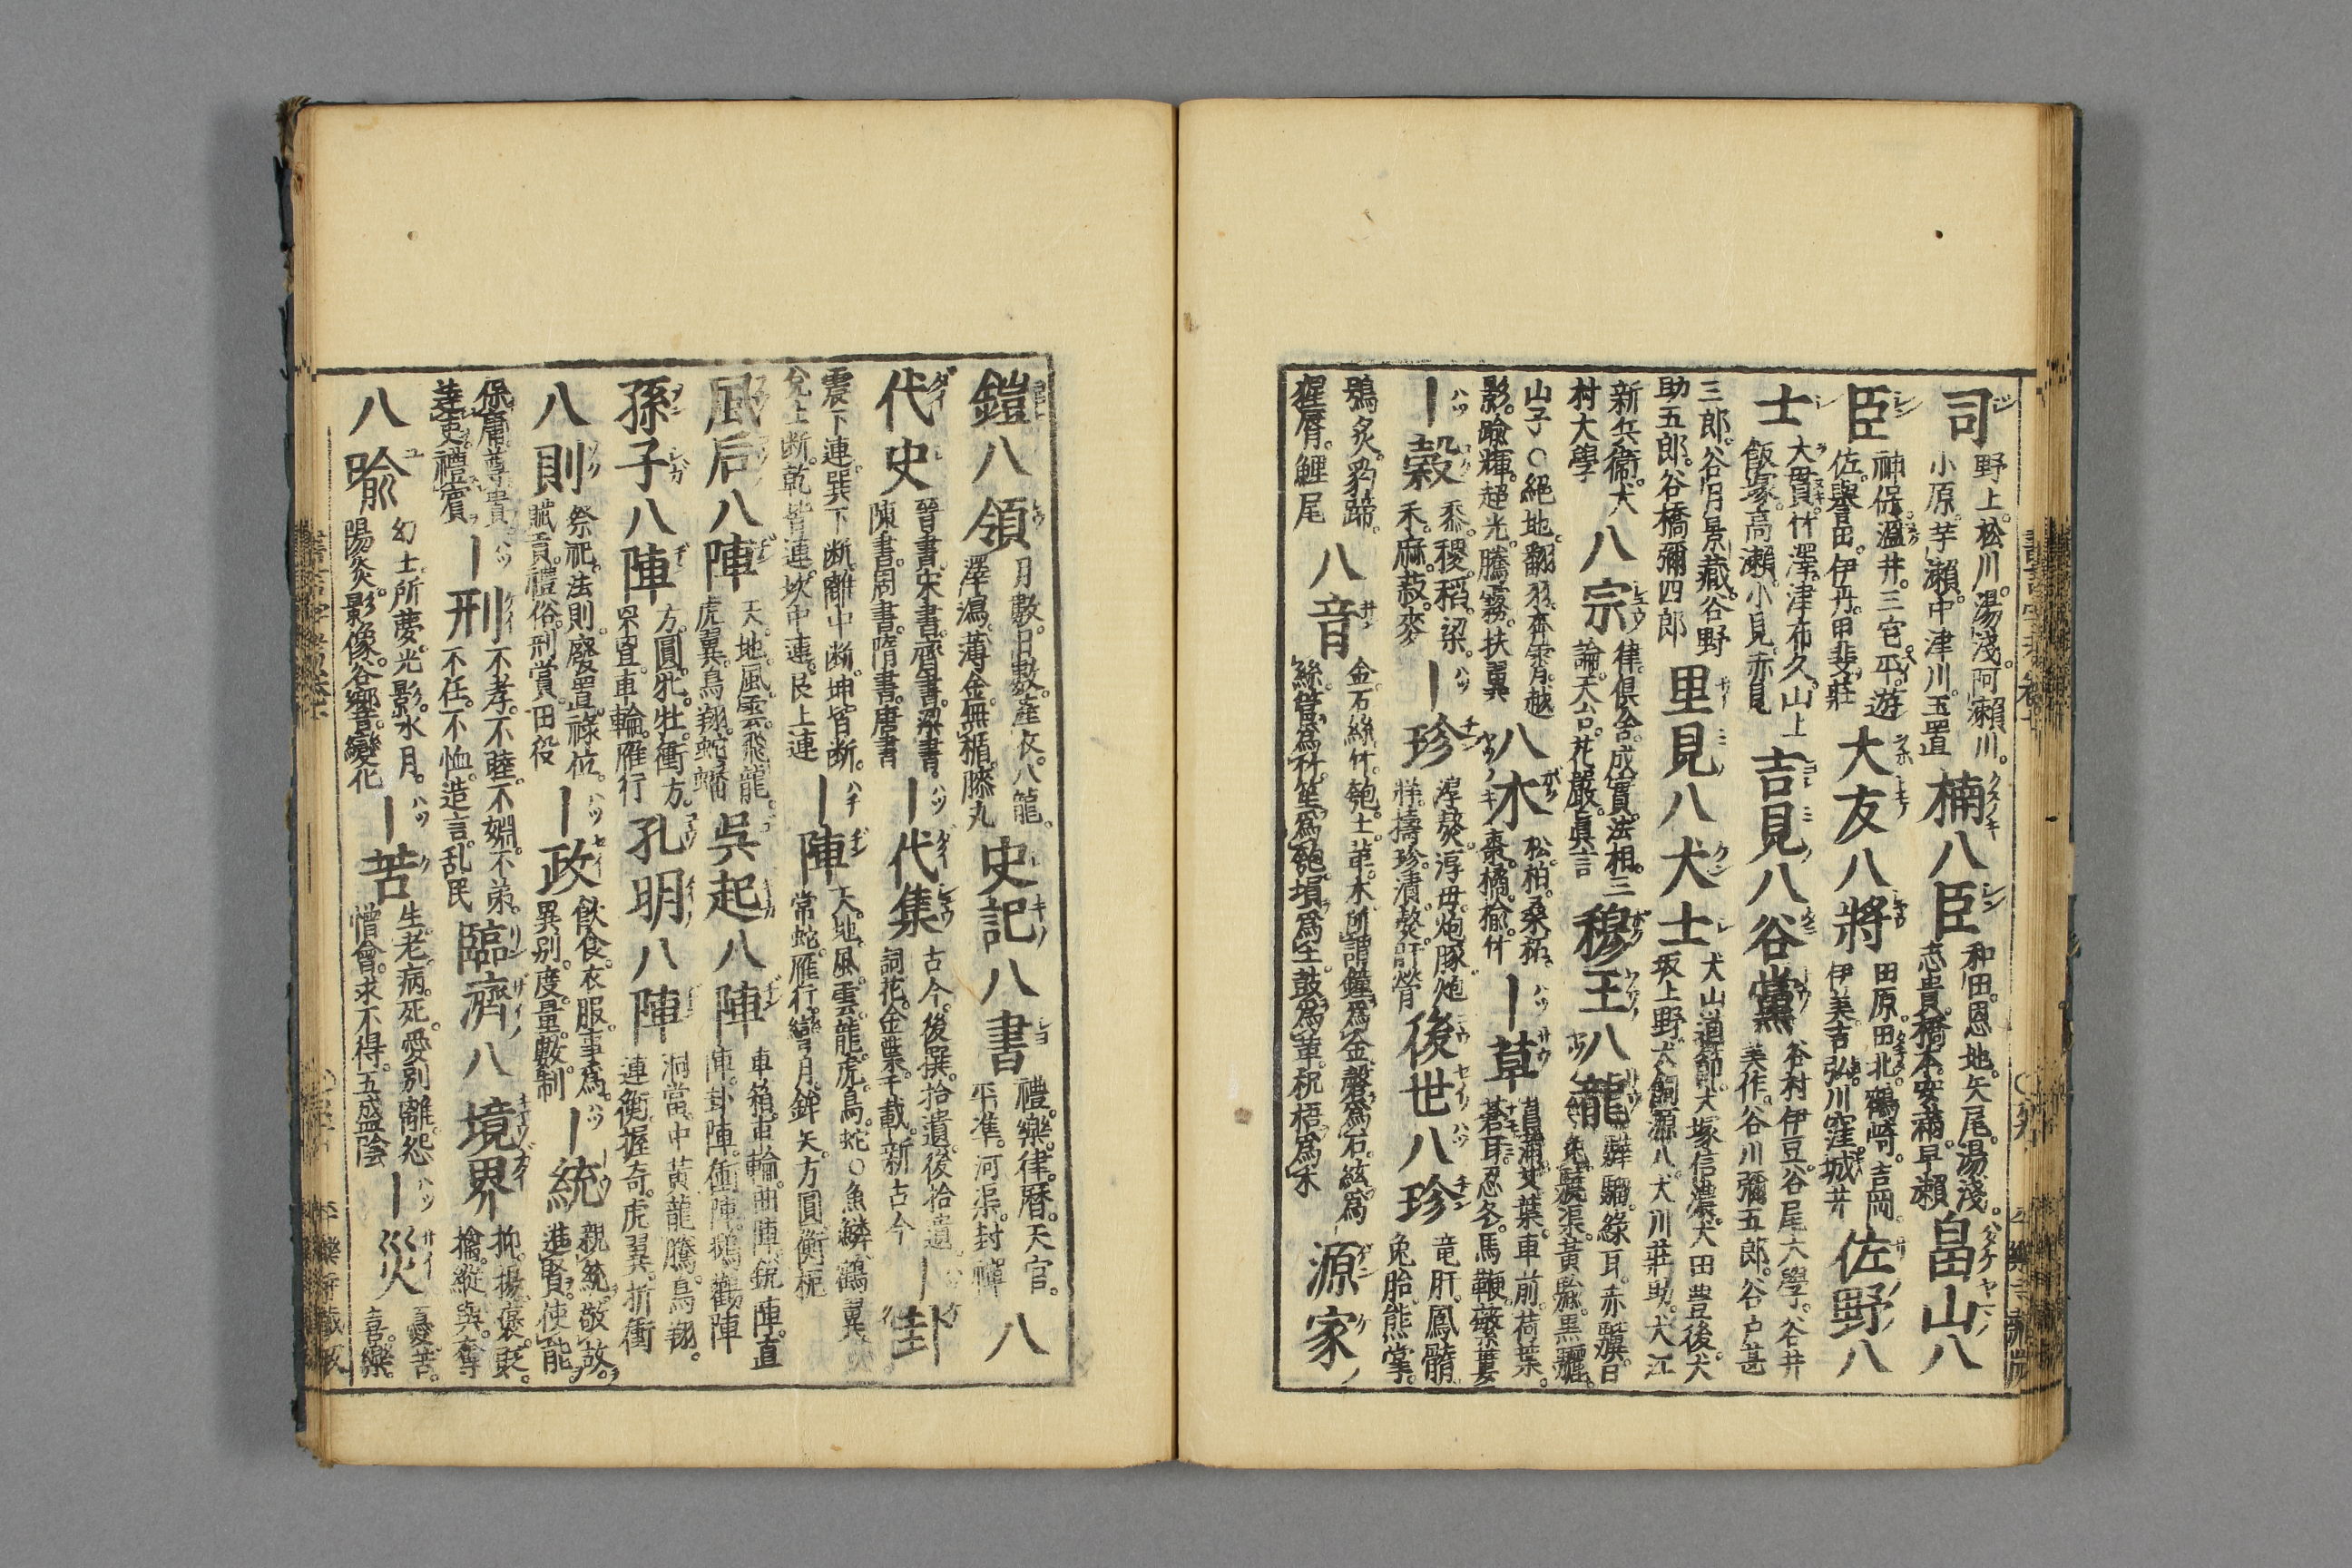 司 野上。松川。湯淺。阿瀬川。小原。芋瀬。中津川。玉置 楠八臣 和田。恩地。矢尾。湯淺。志貴。橋本。安満。早瀬 畠山八
臣 神保。温井。三宅。平。遊佐。譽田。伊丹。甲斐莊 大友八將 田原。田北。鶴崎。吉岡。伊美。吉弘。川窪。城井 佐野八
士 大貫。竹澤。津布久。山上。飯塚。高瀬。小見。赤見 吉見八谷黨 谷村伊豆。谷尾六學。谷井美作。谷川彌五郎。谷户甚
三郎。谷月景藏。谷野助五郎。谷橋彌四郎 里見八犬士 犬山道節。犬塚信濃。犬田豊後。犬坂上野。犬飼源八。犬川莊助。犬江
新兵衞。犬村大學 八宗 律。倶舎。成實。法相。三論。天台。花嚴。眞言 穆王八龍 驊騮。綠耳。赤驥。白兔。驍渠。黃驗。黑驪。
山子○絕地。翻羽。奔霄。越影。踰輝。超光。騰霧。扶翼 八木 松。柏。桑。柘。棗。橘。榆。竹 ー草 菖蒲。艾葉。車前。荷葉。蒼耳。忍冬。馬鞭。蘩蔞
ー穀 黍。稷。稻。粱。禾。麻。菽。麥 ー珍 淳熬。淳毋。炮豚。炮牂。擣珍。漬。熬。肝膋 後世八珍 竜肝。鳳髓。兔胎。熊掌。
鴞炙。豹蹄。猩脣。鯉尾 八音 金石絲竹。匏土革木。所謂鐘爲金。磬爲石。絃爲絲。管爲竹。笙爲匏。塤爲土。鼓爲革。柷梧爲木 源家
鎧八領 月數。日數。產衣。八龍。澤瀉。薄金。無楯。膝丸 史記八書 禮。樂。律。曆。天官。平準。河渠。封禪 八
代史 晉書。宋書。齊書。梁書。陳書。周書。隋書。唐書 ー代集 古今。後撰。拾遺。後拾遺。詞花。金葉。千載。新古今 ー卦
震下連。巽下断。離中断。坤皆断。兌上断。乾皆連。坎中連。艮上連 ー陣 天。地。風。雲。龍。虎。鳥。蛇○魚鱗。鶴翼。常蛇。雁行。彎月。鉾矢。方圓。衡軛
風后八陣 天。地。風。雲。飛龍。虎翼。鳥翔。蛇蟠 呉起八陣 車箱。車輪。曲陣。銳陣。直陣。卦陣。衝陣。鵝鸛陣
孫子八陣 方。圓。牝。牡。衝方。罘罝。車輪。雁行 孔明八陣 洞當。中黃。龍騰。鳥翔。連衡。握奇。虎翼。折衝
八則 祭祀。法則。廢置。祿位。賦貢。禮俗。刑賞。田役 ー政 飲食。衣服。事爲。異別。度。量。數。制 ー統 親親。敬故。進賢。使能。
保庸。尊貴。達吏。禮賓 ー刑 不孝。不睦。不婣。不弟。不任。不恤。造言。乱民 臨濟八境界 抑。揚。褒。貶。擒。縱。與。奪
八喩 幻士。所夢。光影。水月。陽炎。影像。谷響。變化 ー苦 生。老。病。死。愛別離。怨憎會。求不得。五盛陰 ー災 憂。苦。喜。樂。